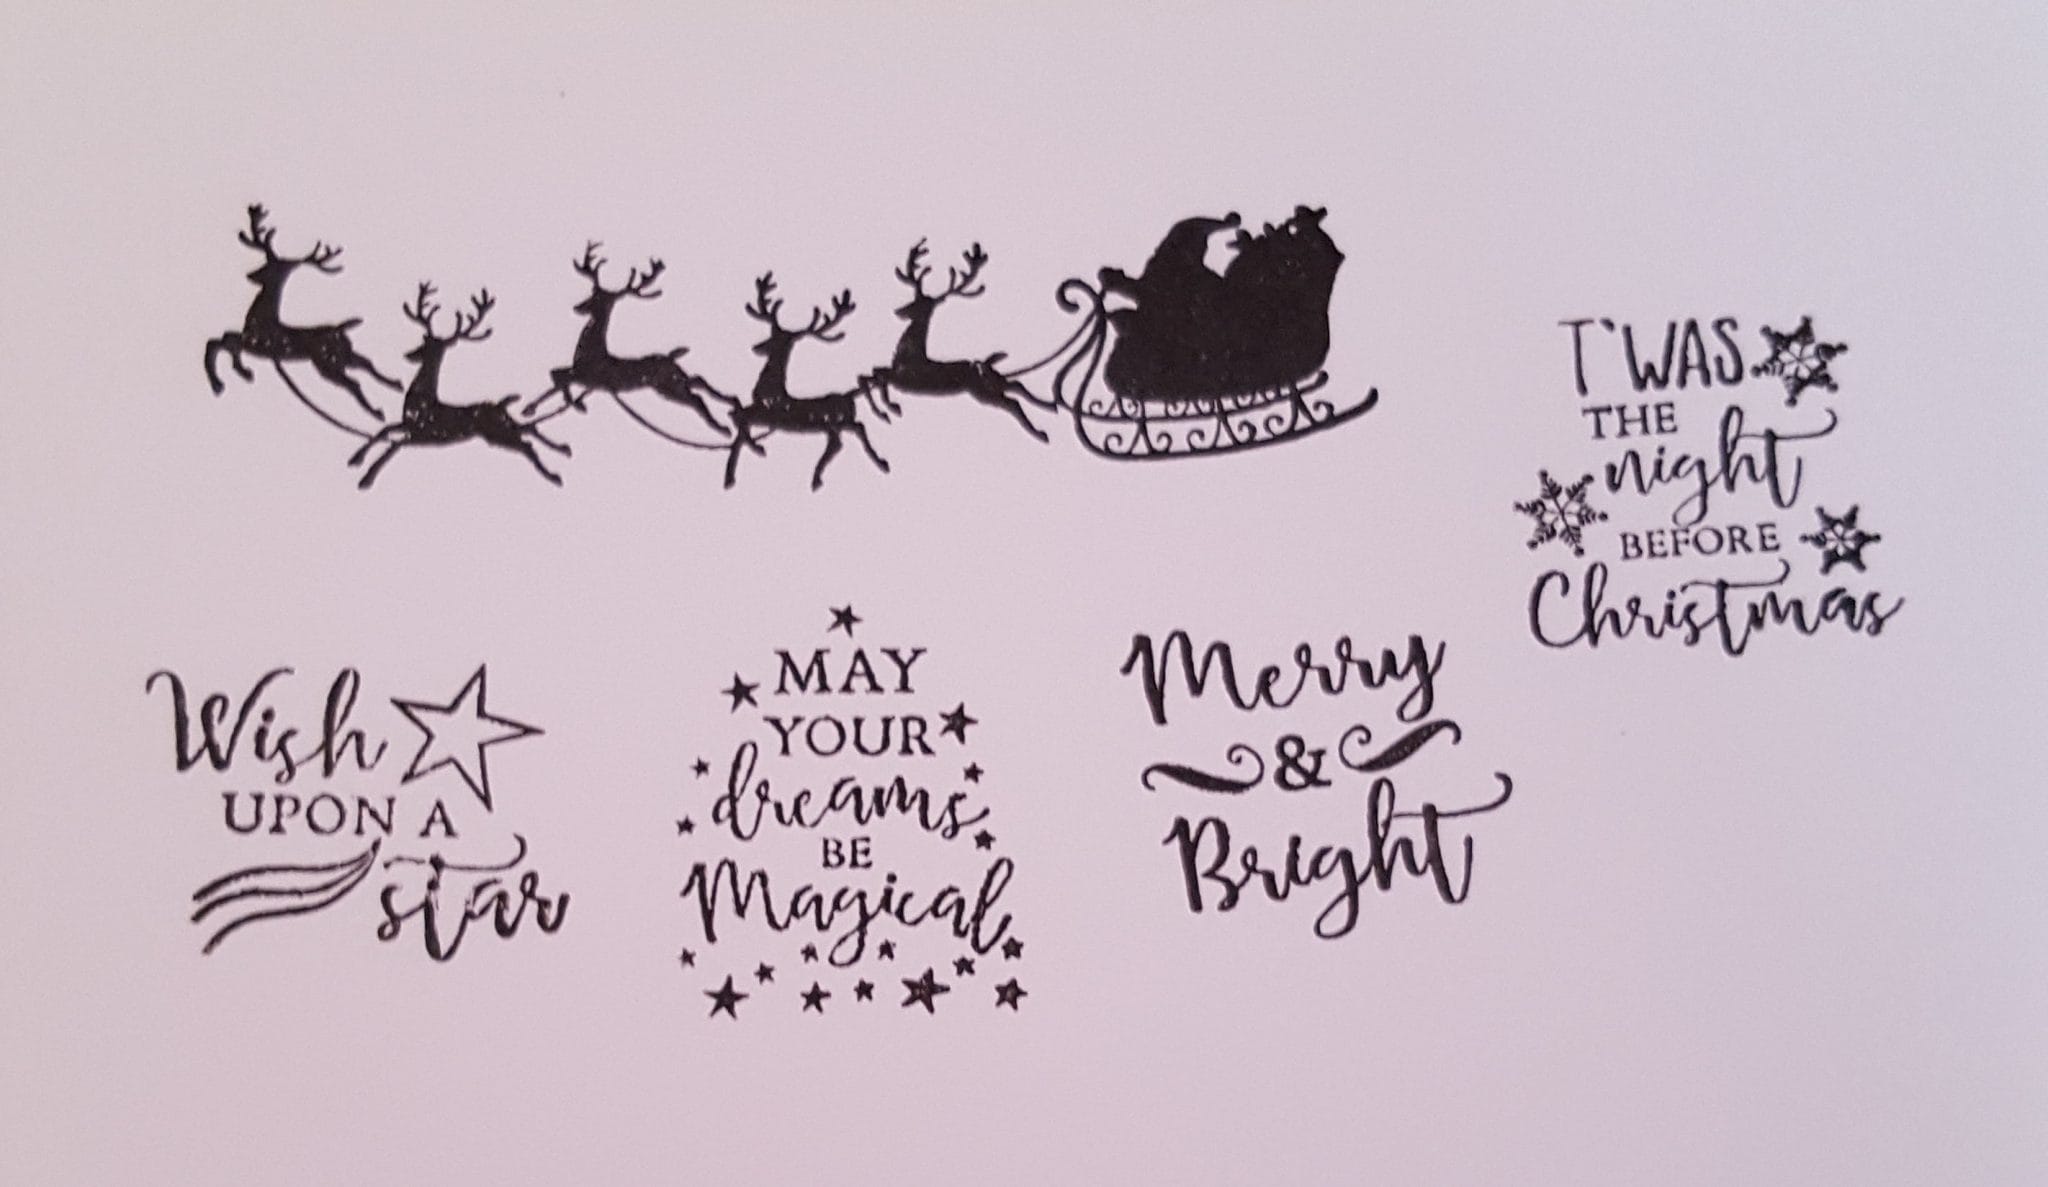 T'WAS
THE
night
BEFORE
Christmas
Wish
UPON A
star
MAY
YOUR
dreams
BE
Magical
Merry
&
Bright